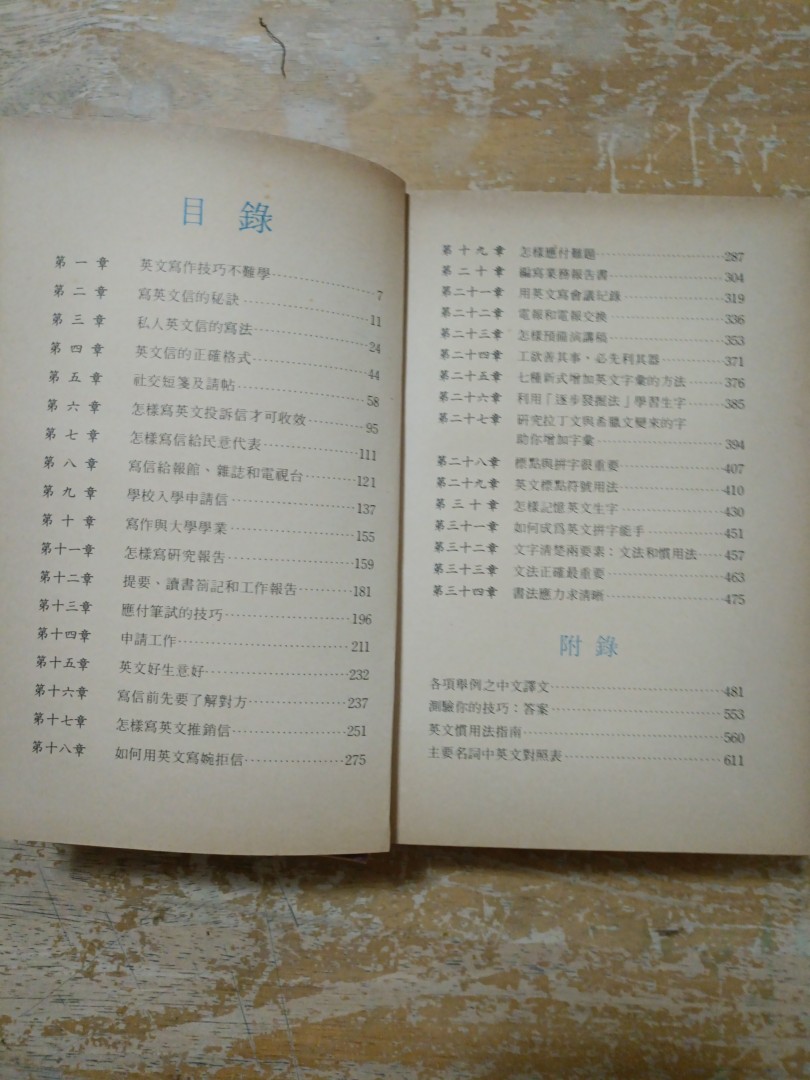 目錄
第一章 英文寫作技巧不難學 7
第二章 寫英文信的秘訣 11
第三章 私人英文信的寫法 24
第四章 英文信的正確格式 44
第五章 社交短箋及請帖 58
第六章 怎樣寫英文投訴信才可收效 95
第七章 怎樣寫信給民意代表 111
第八章 寫信給報館、雜誌和電視台 121
第九章 學校入學申請信 137
第十章 寫作與大學學業 155
第十一章 怎樣寫研究報告 159
第十二章 提要、讀書劄記和工作報告 181
第十三章 應付筆試的技巧 196
第十四章 申請工作 211
第十五章 英文好生意好 232
第十六章 寫信前先要了解對方 237
第十七章 怎樣寫英文推銷信 251
第十八章 如何用英文寫婉拒信 275
第十九章 怎樣應付難題 287
第二十章 編寫業務報告書 304
第二十一章 用英文寫會議紀錄 319
第二十二章 電報和電報交換 336
第二十三章 怎樣預備演講稿 353
第二十四章 工欲善其事、必先利其器 371
第二十五章 七種新式增加英文字彙的方法 376
第二十六章 利用「逐步發掘法」學習生字 385
第二十七章 研究拉丁文與希臘文變來的字
助你增加字彙 394
第二十八章 標點與拼字很重要 407
第二十九章 英文標點符號用法 410
第三十章 怎樣記憶英文生字 430
第三十一章 如何成爲英文拼字能手 451
第三十二章 文字清楚兩要素：文法和慣用法 457
第三十三章 文法正確最重要 463
第三十四章 書法應力求清晰 475
附錄
各項舉例之中文譯文 481
測驗你的技巧：答案 553
英文慣用法指南 560
主要名詞中英文對照表 611